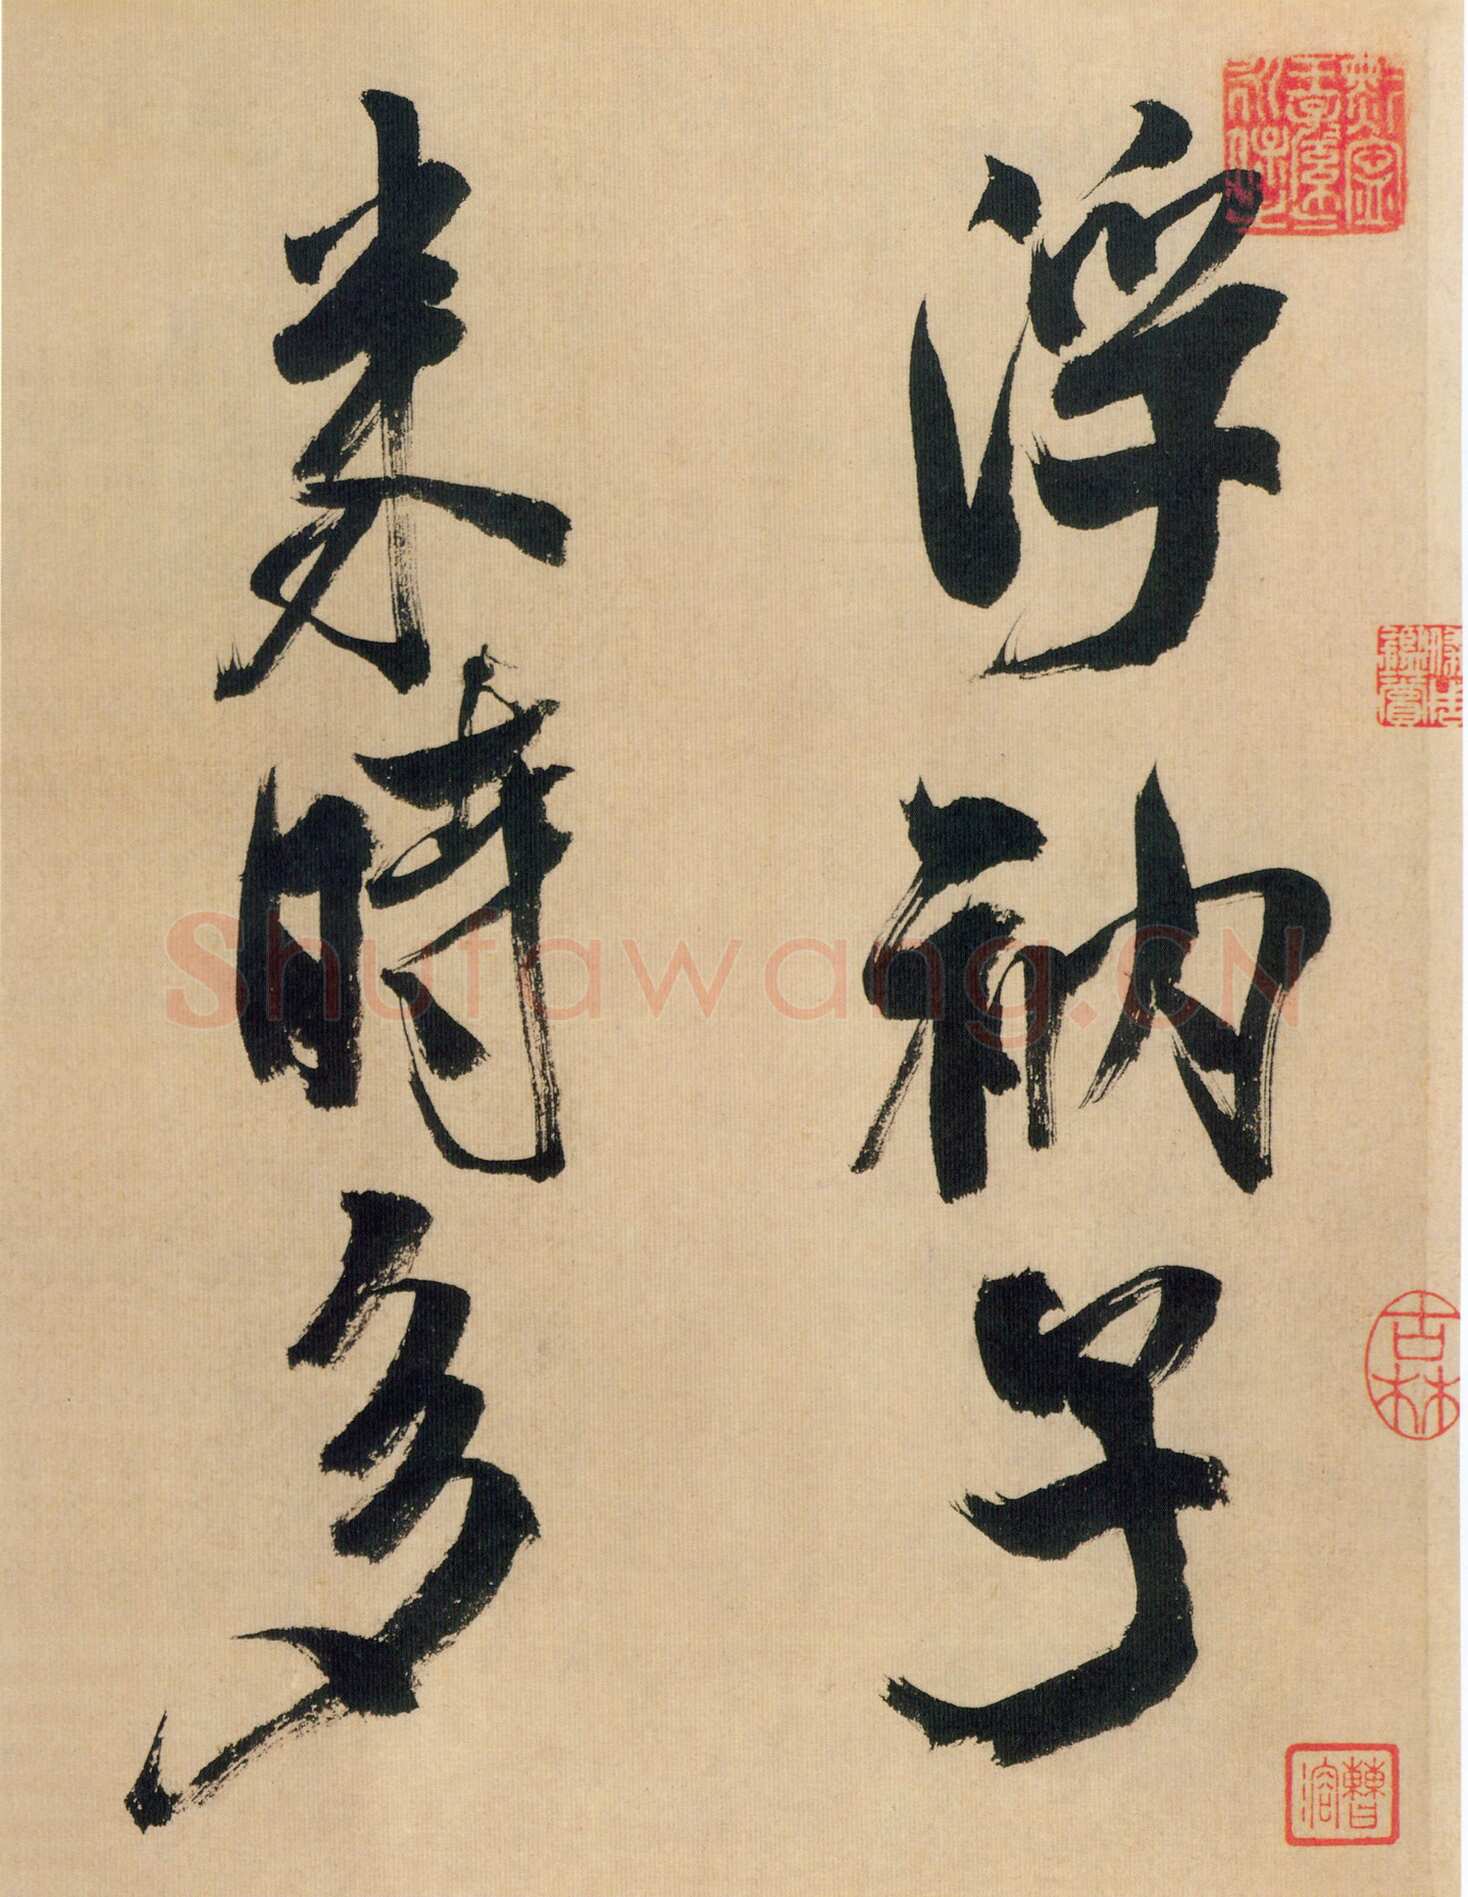 浮衲子
来時多
古林
曹溶
Shufawang.CN